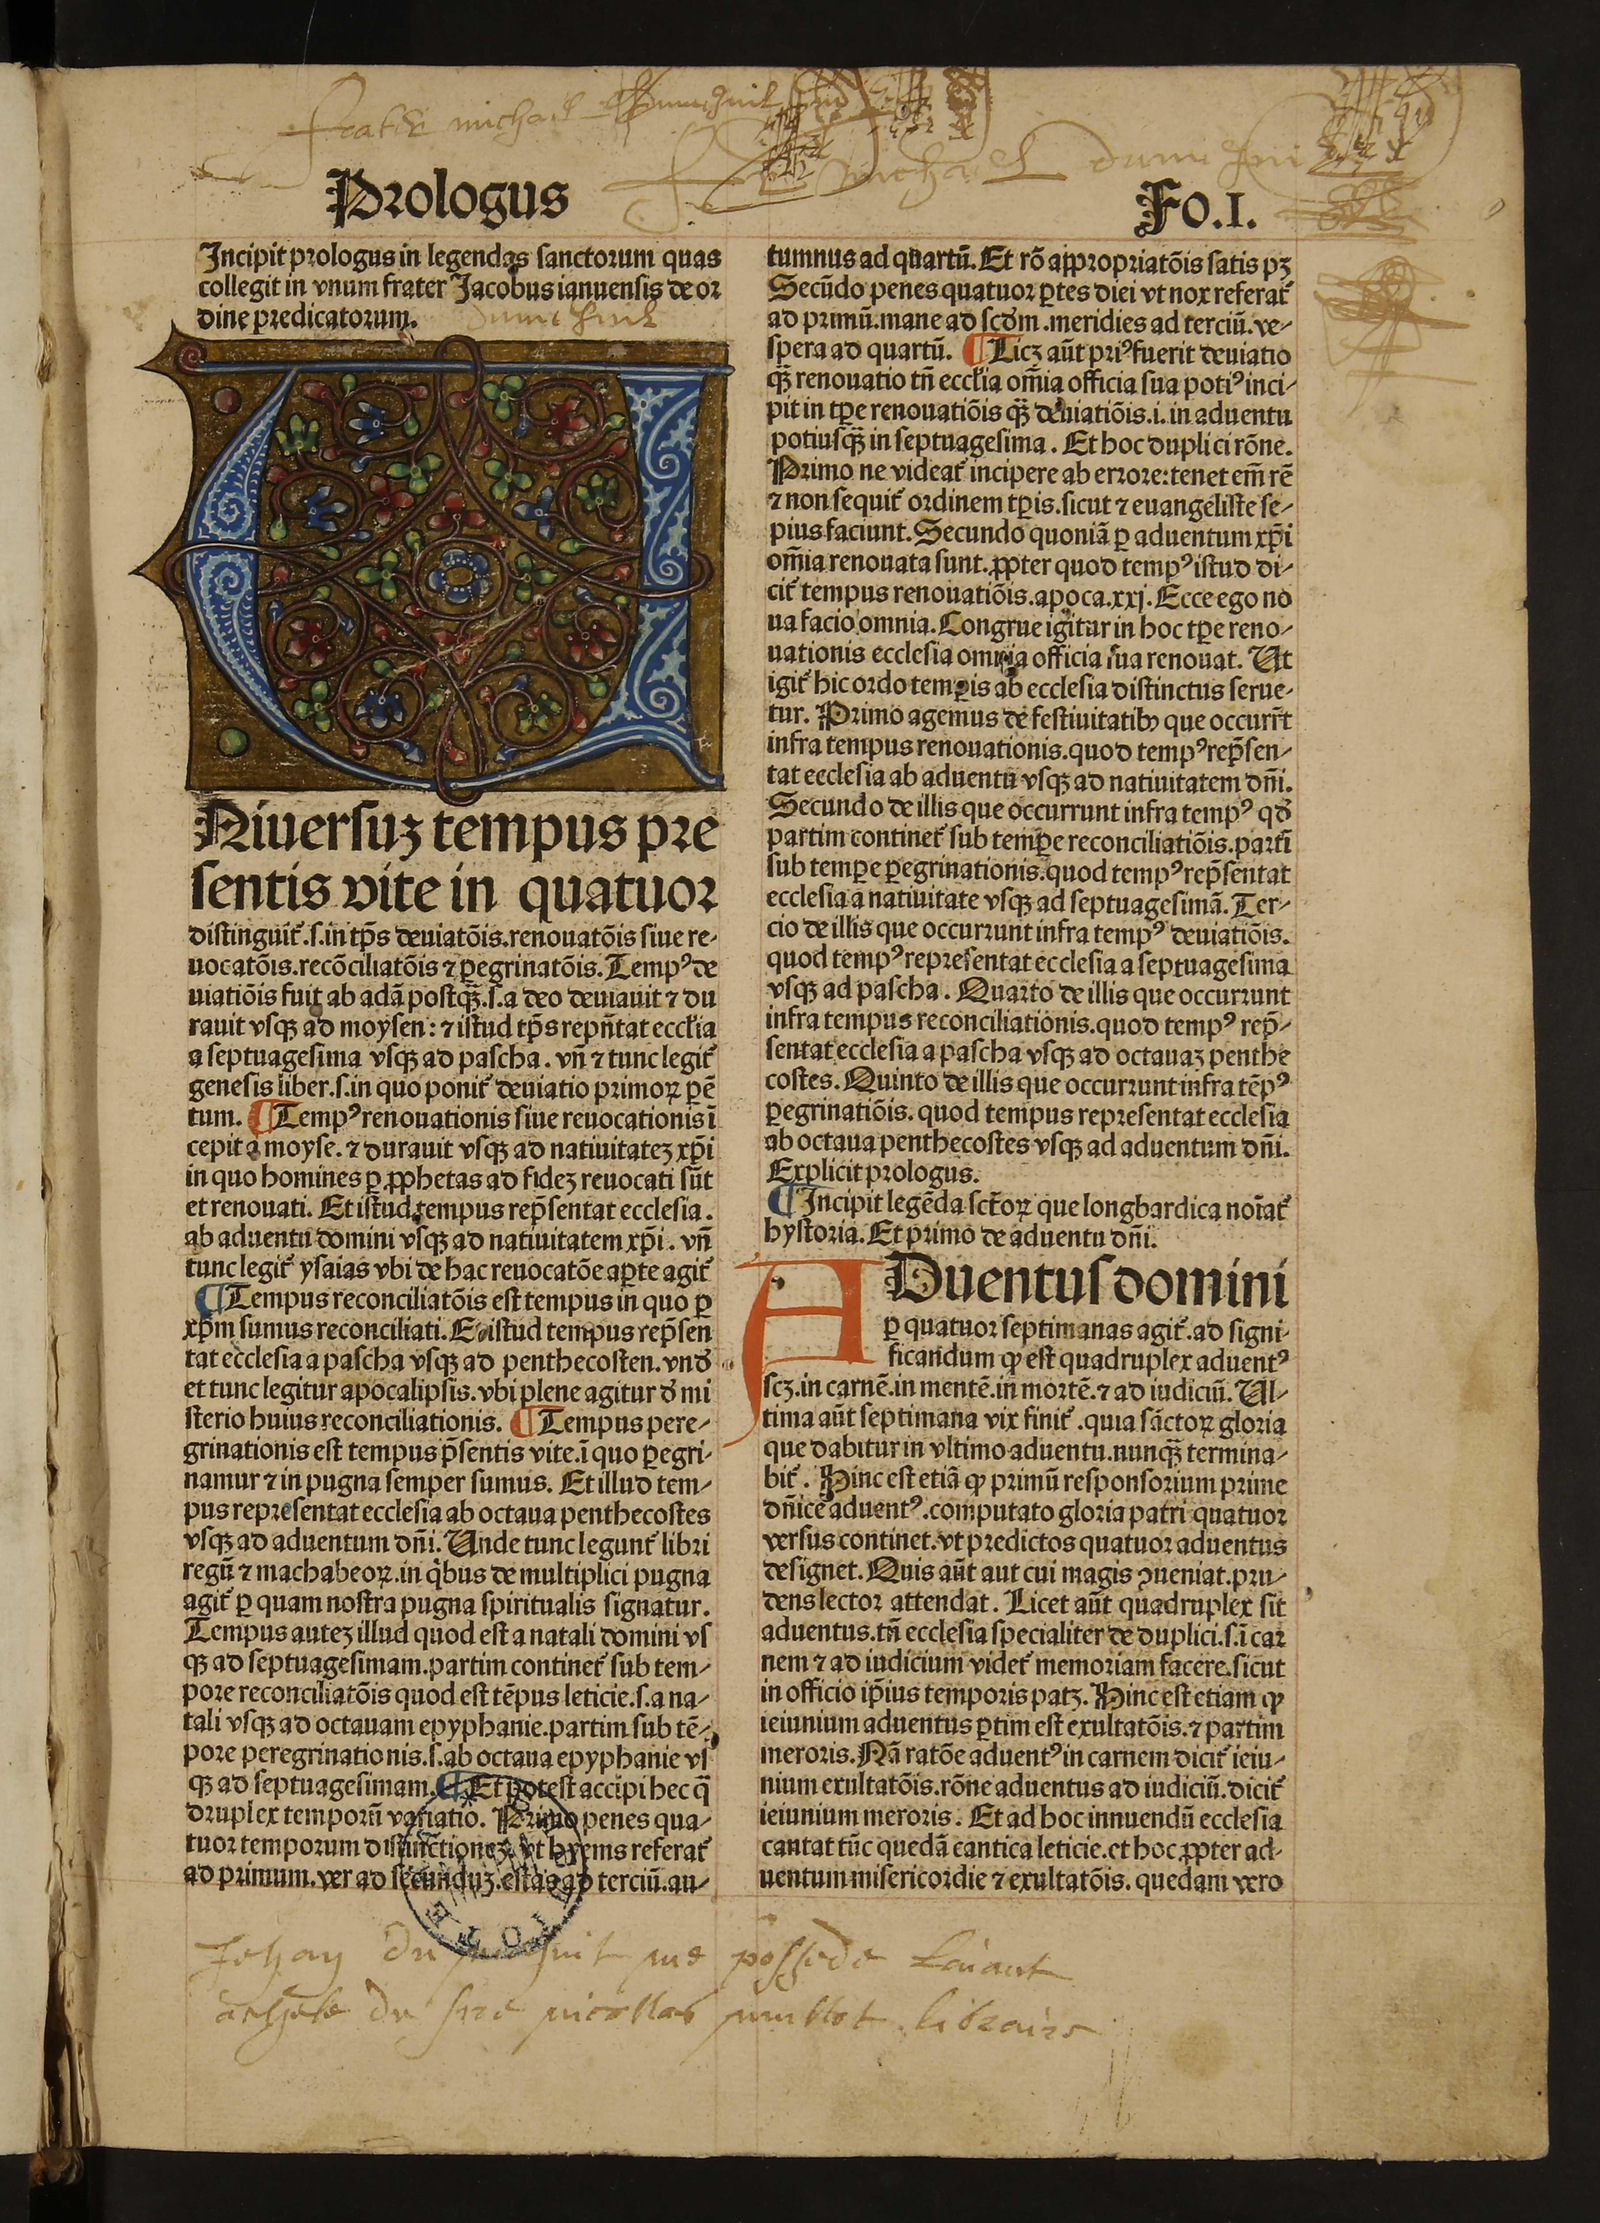 frater michael
michael
Prologus
Fo.I.
Incipit prologus in legendas ſanctorum quas
collegit in vnum frater Jacobus ianuenſis de or
dine predicatorum.
Niuerſuꝫ tempus pre
ſentis vite in quatuor
diſtinguit̄.ſ.in tp̄s deuiatōis.renouatōis ſiue re⸗
uocatōis.recōciliatōis ⁊ ꝑegrinatōis. Tempꝰ de
uiatiōis fuit ab adā poſtqȝ̄.ſ.a deo deuiauit ⁊ du
rauit vſqȝ ad moyſen: ⁊ iſtud tp̄s repn̄tat eccłia
a ſeptuageſima vſqȝ ad paſcha. vn̄ ⁊ tunc legit̄
geneſis liber.ſ.in quo ponit̄ deuiatio primoꝝ ꝑē
tum. ¶ Tempꝰ renouationis ſiue reuocationis ī
cepit a moyſe. ⁊ durauit vſqȝ ad natiuitateꝫ xp̄i
in quo homines ꝑ ꝓphetas ad fideꝫ reuocati ſūt
et renouati. Et iſtud tempus rep̄ſentat eccleſia.
ab aduentu domini vſqȝ ad natiuitatem xp̄i. vn̄
tunc legit̄ yſaias vbi de hac reuocatōe aꝑte agit̄
¶ Tempus reconciliatōis eſt tempus in quo ꝑ
xp̄m ſumus reconciliati. Et iſtud tempus rep̄ſen
tat eccleſia a paſcha vſqȝ ad penthecoſten. vnð
et tunc legitur apocalipſis. vbi plene agitur ð mi
ſterio huius reconciliationis. ¶ Tempus pere⸗
grinationis eſt tempus p̄ſentis vite.ī quo ꝑegri⸗
namur ⁊ in pugna ſemper ſumus. Et illud tem⸗
pus repreſentat eccleſia ab octaua penthecoſtes
vſqȝ ad aduentum dn̄i. Unde tunc legunt̄ libri
regū ⁊ machabeoꝝ.in qͥbus de multiplici pugna
agit̄ ꝑ quam noſtra pugna ſpiritualis ſignatur.
Tempus auteꝫ illud quod eſt a natali domini vſ
qȝ ad ſeptuageſimam.partim continet̄ ſub tem⸗
pore reconciliatōis quod eſt tēpus leticie.ſ.a na⸗
tali vſqȝ ad octauam epyphanie.partim ſub tē⸗
pore peregrinationis.ſ.ab octaua epyphanie vſ
qȝ ad ſeptuageſimam. ¶ Et poteſt accipi hec q̄
druplex temporū variatio. Primo penes qua⸗
tuor temporum diſtinctioneꝫ. vt hyems referat̄
ad primum. ver ad ſecunduꝫ.eſtas ad terciū.au⸗
tumnus ad quartū. Et rō appropriatōis ſatis pꝫ
Secūdo penes quatuor ꝑtes diei vt nox referat̄
ad primū.mane ad ſcðm .meridies ad terciū.ve⸗
ſpera ad quartū. ¶ Licꝫ aūt priꝰ fuerit deuiatio
qȝ̄ renouatio tn̄ eccłia om̄ia officia ſua potiꝰ inci⸗
pit in tꝑe renouatiōis qȝ̄ deuiatiōis.i. in aduentu
potiuſqȝ̄ in ſeptuageſima. Et hoc duplici rōne.
Primo ne videat̄ incipere ab errore: tenet em̄ rē
⁊ non ſequit̄ ordinem tꝑis. ſicut ⁊ euangeliſte ſe⸗
pius faciunt. Secundo quoniā ꝑ aduentum xp̄i
om̄ia renouata ſunt. ꝓpter quod tempꝰ iſtud di⸗
cit̄ tempus renouatiōis.apoca.xxj. Ecce ego no
ua facio omnia. Congrue igitur in hoc tꝑe reno⸗
uationis eccleſia omnia officia ſua renouat. Ut
igit̄ hic ordo temꝑis ab eccleſia diſtinctus ſerue⸗
tur. Primo agemus de feſtiuitatibꝫ que occurrt̄
infra tempus renouationis.quod tempꝰ rep̄ſen⸗
tat eccleſia ab aduentu vſqȝ ad natiuitatem dn̄i.
Secundo de illis que occurrunt infra tempꝰ qð
partim continet̄ ſub temꝑe reconciliatiōis.partī
ſub temꝑe ꝑegrinationis.quod tempꝰ rep̄ſentat
eccleſia a natiuitate vſqȝ ad ſeptuageſimā. Ter⸗
cio de illis que occurrunt infra tempꝰ deuiatiōis.
quod tempꝰ repreſentat eccleſia a ſeptuageſima
vſqȝ ad paſcha. Quarto de illis que occurrunt
infra tempus reconciliationis.quod tempꝰ rep̄⸗
ſentat eccleſia a paſcha vſqȝ ad octauaꝫ penthe
coſtes. Quinto de illis que occurrunt infra tēpꝰ
ꝑegrinatiōis. quod tempus repreſentat eccleſia
ab octaua penthecoſtes vſqȝ ad aduentum dn̄i.
Explicit prologus.
¶ Incipit legēda ſct̄oꝝ que longbardica noīat̄
hyſtoria. Et primo de aduentu dn̄i.
ADuentuſ domini
ꝑ quatuor ſeptimanas agit̄.ad ſigni⸗
ficandum ꝙ eſt quadruplex aduentꝰ
ſcꝫ.in carnē.in mentē.in mortē.⁊ ad iudiciū. Ul⸗
tima aūt ſeptimana vix finit̄ .quia ſāctoꝝ gloria
que dabitur in vltimo aduentu.nunqȝ̄ termina⸗
bit̄. Hinc eſt etiā ꝙ primū reſponſorium prime
dn̄ice aduentꝰ .computato gloria patri quatuor
verſus continet.vt predictos quatuor aduentus
deſignet. Quis aūt aut cui magis ꝯueniat.pru⸗
dens lector attendat. Licet aūt quadruplex ſit
aduentus.tn̄ eccleſia ſpecialiter de duplici.ſ.ī car
nem ⁊ ad iudicium videt̄ memoriam facere.ſicut
in officio ip̄ius temporis patꝫ. Hinc eſt etiam ꝙ
ieiunium aduentus ꝑtim eſt exultatōis.⁊ partim
meroris. Nā ratōe aduentꝰ in carnem dicit̄ ieiu⸗
nium exultatōis.rōne aduentus ad iudiciū. dicit̄
ieiunium meroris. Et ad hoc innuendū eccleſia
cantat tūc quedā cantica leticie.et hoc ꝓpter ad⸗
uentum miſericordie ⁊ exultatōis. quedam vero
Jehan du me poſſede
du nicollas libraire